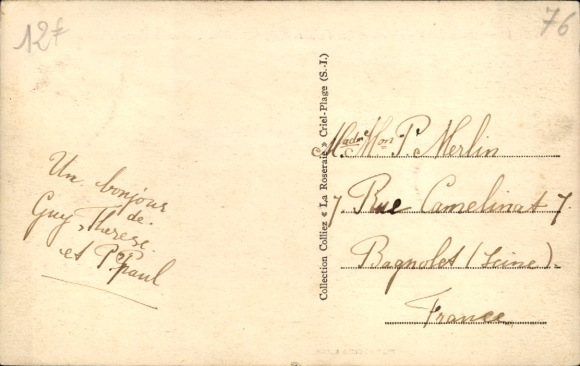 12f
76
Un bonjour
de
Guy, Therese.
et P Paul
Collection Colliez « La Roseraie » Criel-Plage (S.-I.)
Madme Mon P Merlin
7 Rue Camelinat 7
Bagnolet (Seine).
France